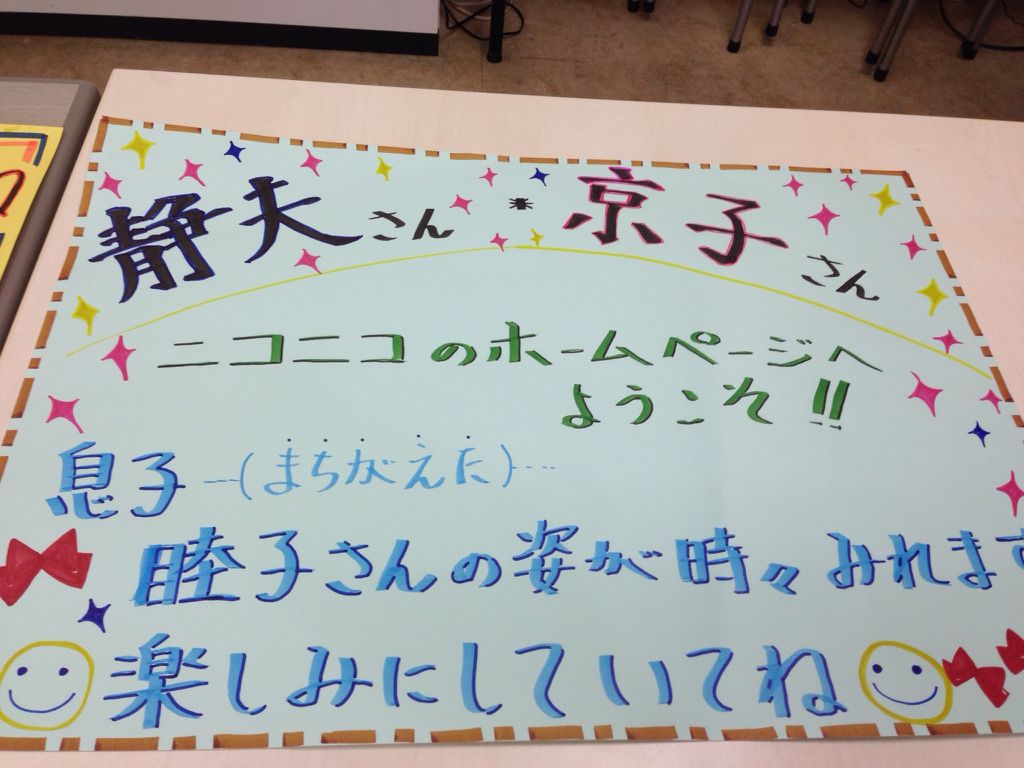 静夫さん・京子さん
ニコニコのホームページへ
ようこそ!!
息子…(まちがえた)…
睦子さんの姿が時々みれます
楽しみにしていてね